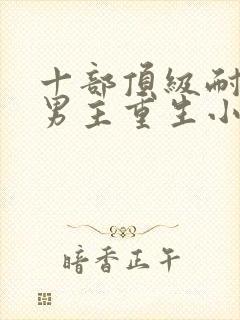 十部頂級耐
男主重生小
暗香正午